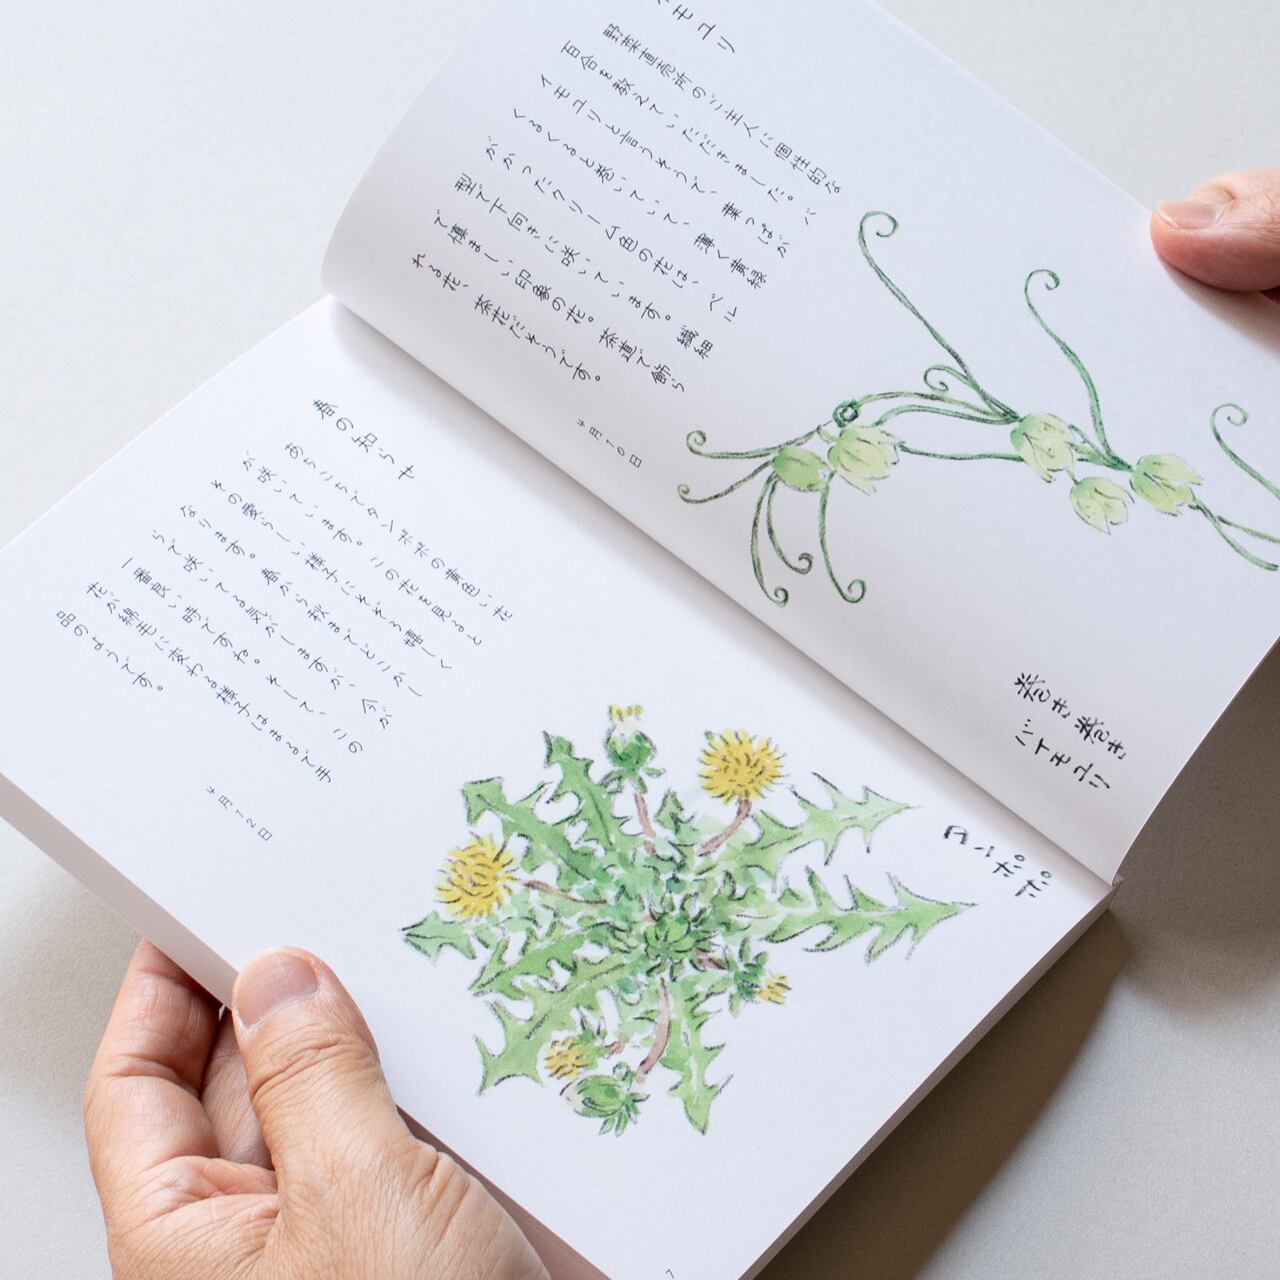 イモユリ
野菜直売所のご主人に個性的な
百合を教えていただきました。バ
イモユリと言うそうで、葉っぱが
くるくると巻いていて、薄く黄緑
がかったクリーム色の花は、ベル
型で下向きに咲いています。繊細
で慎ましい印象の花。茶道で飾ら
れる花、茶花だそうです。
4月10日
巻き巻き
バイモユリ
春の知らせ
あちこちでタンポポの黄色い花
が咲いています。この花を見ると
その愛らしい様子にそぞろ嬉しく
なります。春から秋までどこかし
らで咲いてる気がしますが、今が
一番良い時ですね。そして、この
花が綿毛に変わる様子はまるで手
品のようです。
4月12日
タンポポ
7